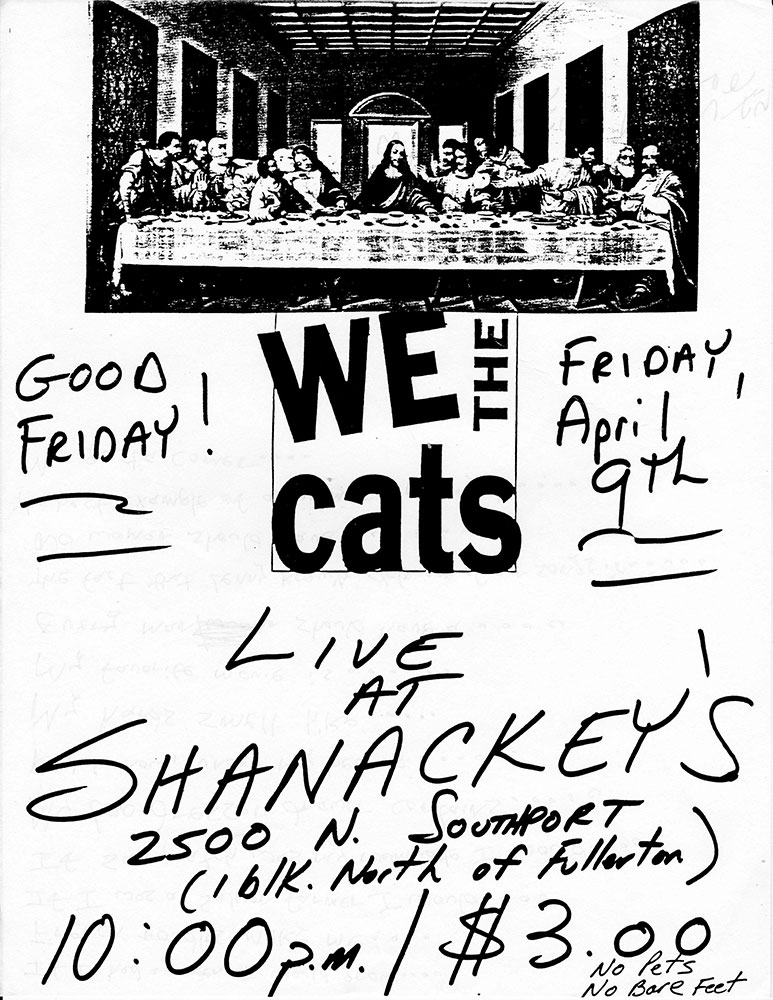 WE THE
cats
GOOD
FRIDAY!
FRIDAY,
April
9Th
LIVE
AT
SHANACKEY'S
2500 N. SOUTHPORT
(1 blK. North of Fullerton)
10:00 p.m. / $3.00
No Pets
No Bare Feet